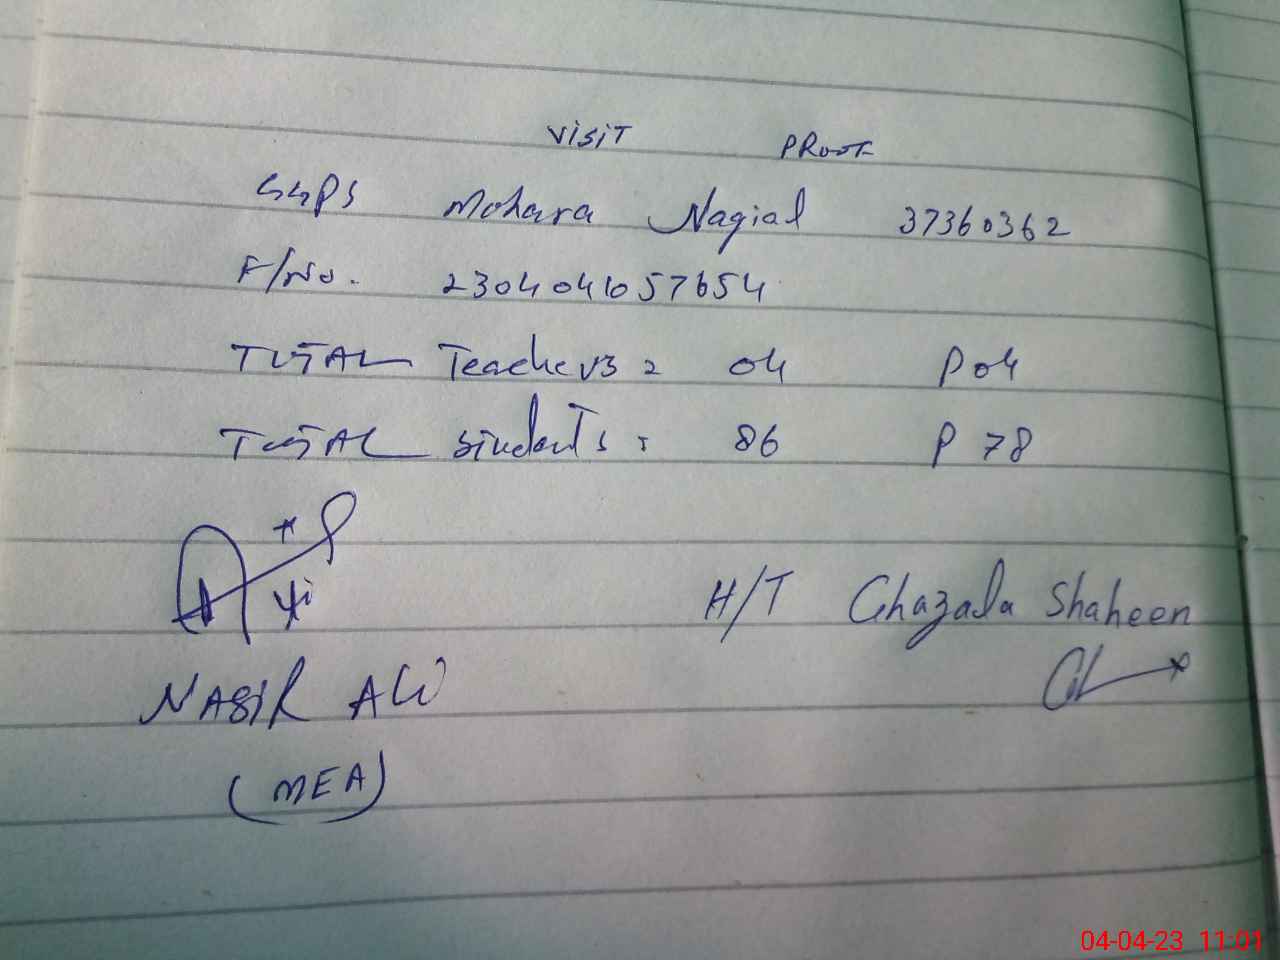 VISIT PROOF
GGPS Mohara Nagial 37360362
F/No. 2304041057654
TOTAL Teachers = 04 P 04
TOTAL Students = 86 P 78
H/T Ghazala Shaheen
NASIR ALI
(MEA)
04-04-23 11:01